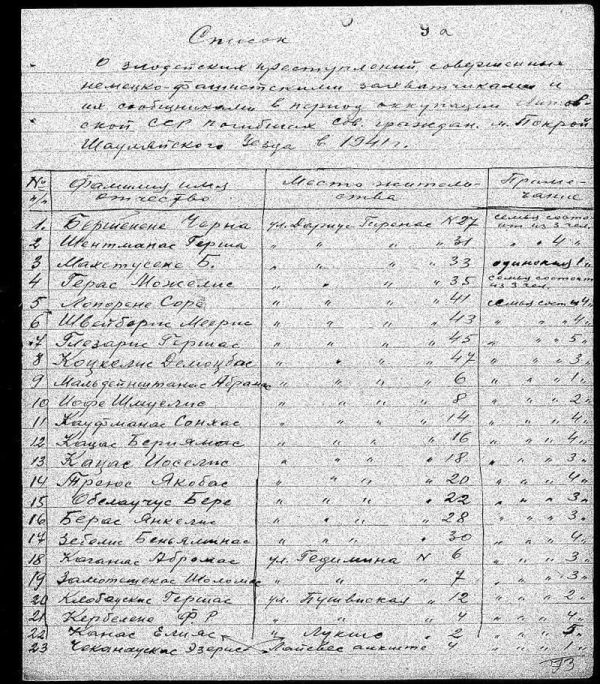 Список 9а
О злодейских преступлений совершенных
немецко-фашистскими захватчиками и
их сообщниками в период оккупации Литов-
ской ССР погибших сов. граждан. м. Покрой
Шауляйского Уезда в 1941 г.
№ п/п Фамилия имя отчество Место житель-ства Приме-чание
1. Бершенене Черна ул. Дариус Гиренас № 27 семья состо-ит из 3 чел.
2 Шентманас Герша " " " " 31 " " 4 "
3 Б. " " " " 33 одинокая
4 Герас Можелис " " " " 35 семья состоит из 3 чел.
5 Лопорене Соре " " " " 41 семья сост. 4 "
6 Швейборис Меерис " " " " 43 " " " 4 "
7 Глезарис Гершас " " " " 45 " " " 5 "
8 Коцкелис " " " " 47 " " " 3 "
9 Абрана " " " " 6 " " " 1 "
10 Иофе Шмуелис " " " " 8 " " " 2 "
11 Кауфманас Сонхас " " " " 14 " " " 4 "
12 Кацас Бериямас " " " " 16 " " " 4 "
13 Кацас Иоселис " " " " 18 " " " 3 "
14 Якобас " " " " 20 " " " 4 "
15 Обелаучус Бере " " " " 22 " " " 3 "
16 Берас Янкелис " " " " 28 " " " 3 "
17 Беньяминас " " " " 30 " " " 4 "
18 Каганас Абромас ул. Гедимина № 6 " " " 3 "
19 Шоломас " " " 7 " " " 3 "
20 Гершас ул. Пушкинская " 12 " " " 2 "
21 Кербелене Ф Р " " " 4 " " " 4 "
22 Канас Елияс " Лукшо " 2 " " " 5 "
23 Чеканаускас Эзерис Лайсвес аикште 4 " " " 1 "
73